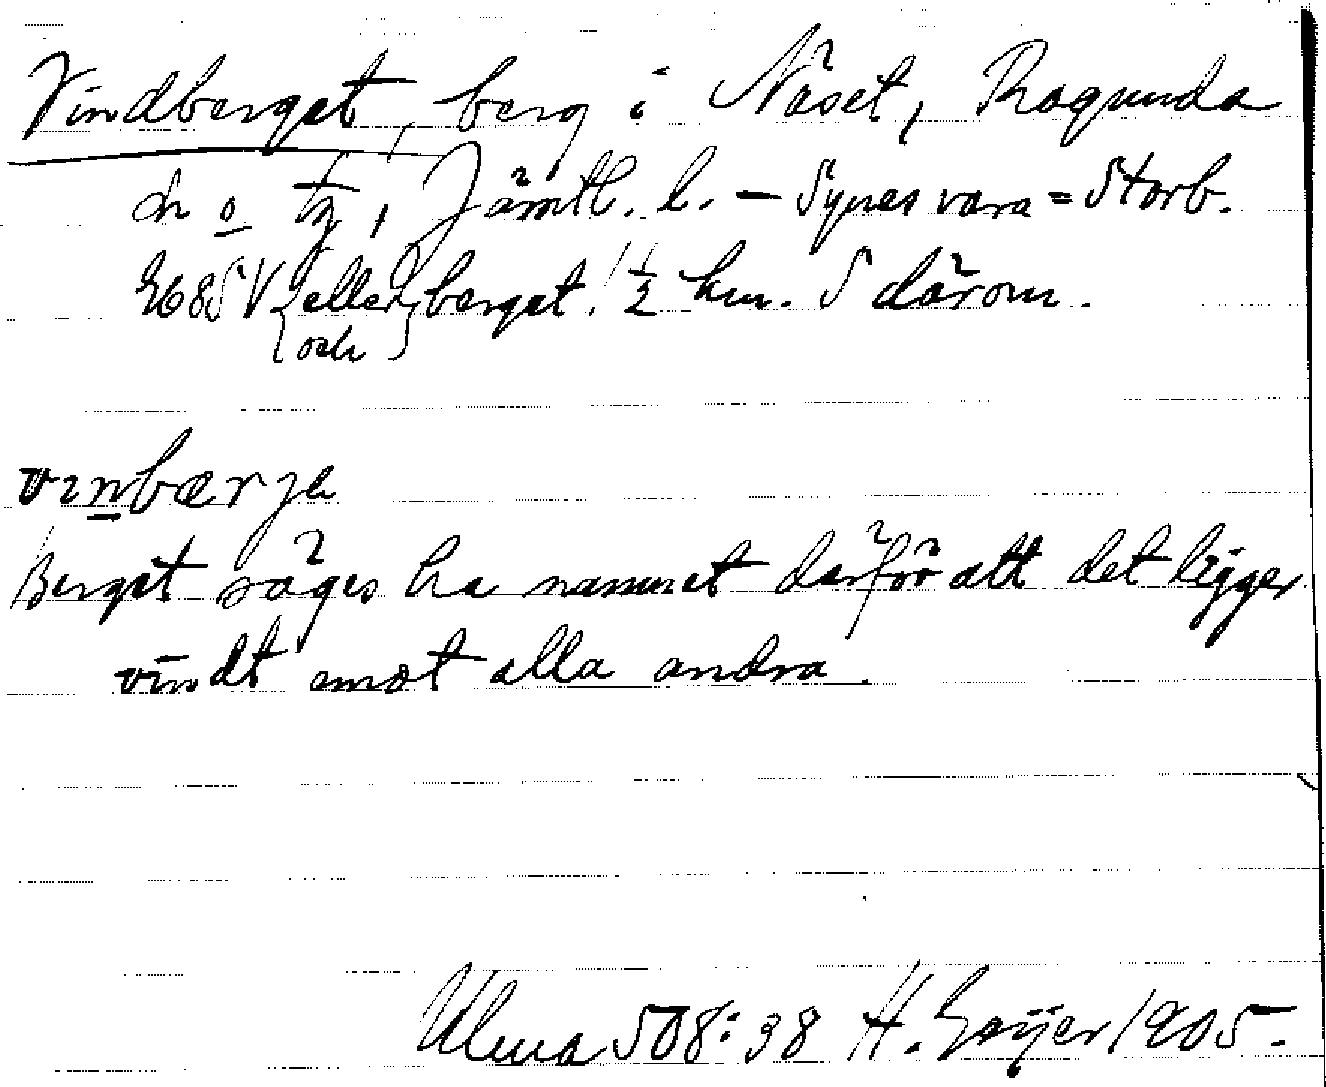 Vindberget, berg i Näset, Ragunda
sn o tg, Jämtl. l. – Synes vara = Storb.
268 SV {eller och} berget. 1/2 km. S därom.
vinbærje
Berget säges ha namnet därför att det ligger
vindt emot alla andra.
Ulma 508:38 H. Geijer 1905.